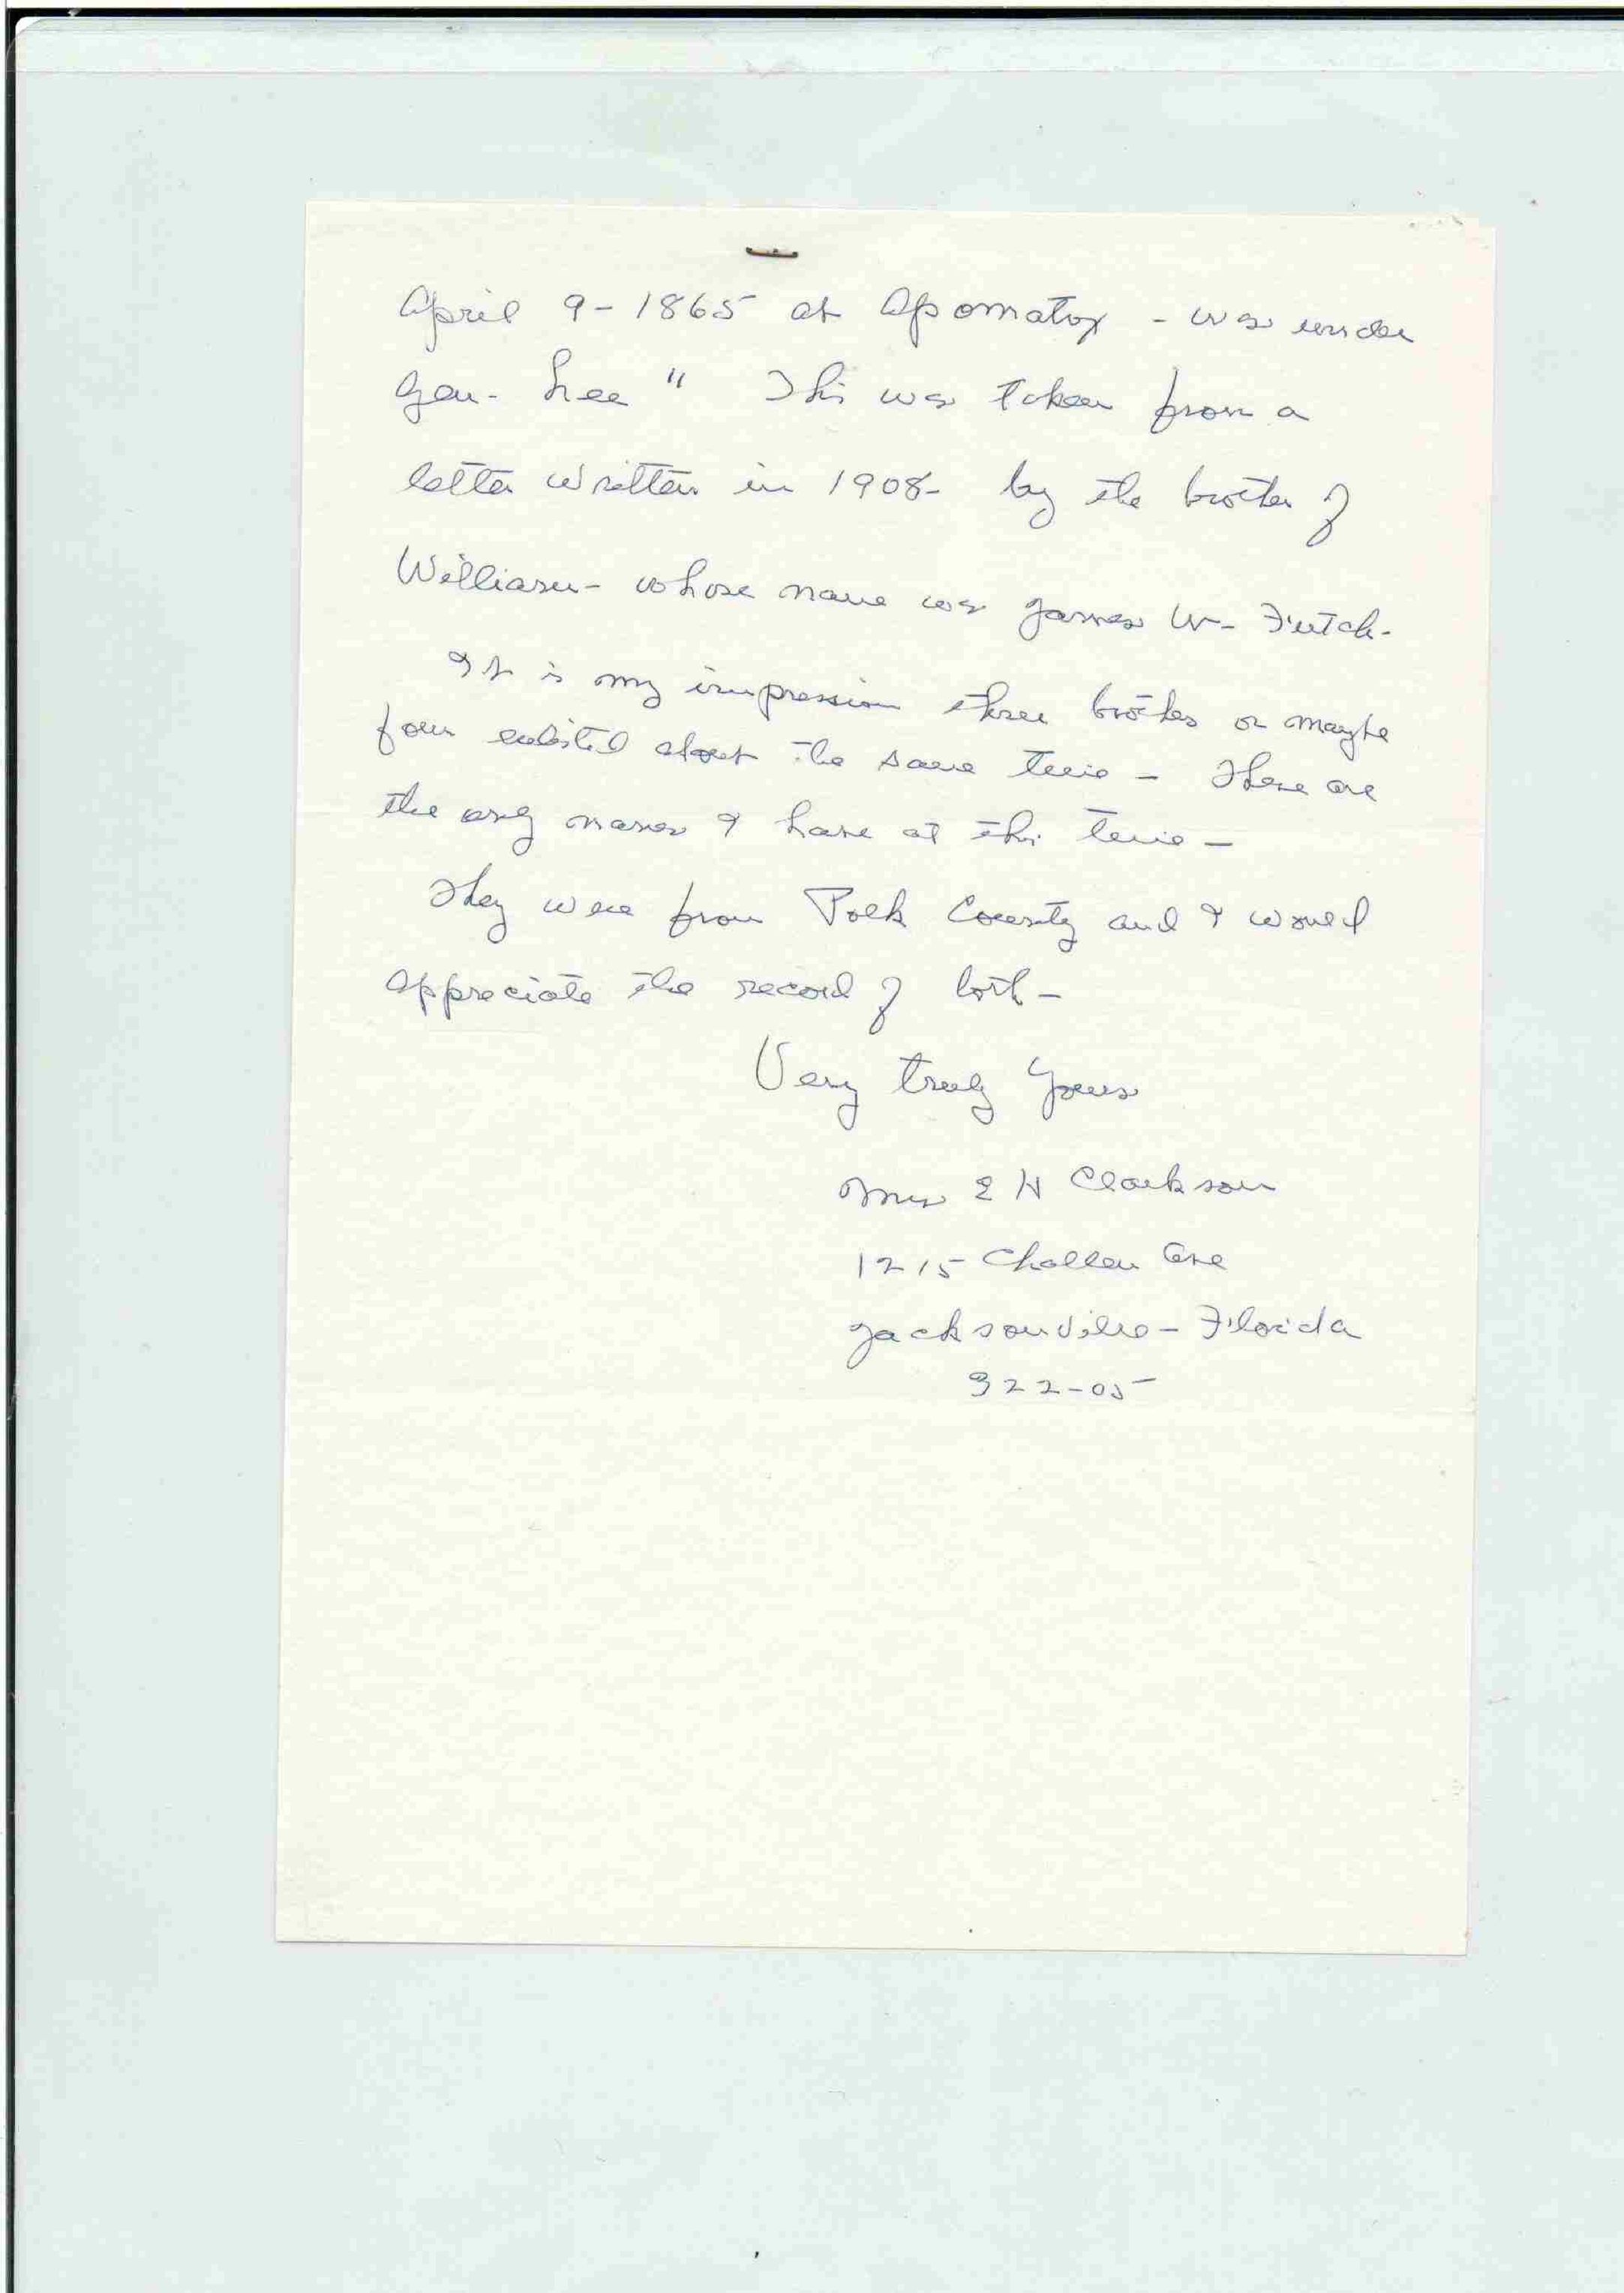 April 9 - 1865 at Apomatox - was under
Gen - Lee " This was taken from a
letter written in 1908 - by the brother of
William - whose name was James W - Futch -
It is my impression three brothers or maybe
four enlisted about the same time - These are
the only names I have at this time -
They were from Polk County and I would
appreciate the record of both -
Very truly yours
Mrs E H Clarkson
1215 Challen Ave
Jacksonville - Florida
322-05